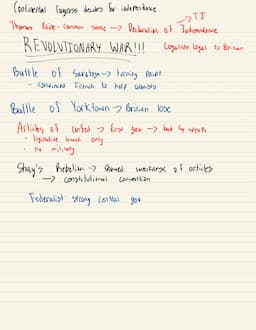 Continental Congress decides for independence
→ TJ
Thomas Paine - common sense → Declaration of Independence
REVOLUTIONARY WAR!!!
Loyalists loyal to Britain
Battle of Saratoga → turning point
- convinced French to help colonists
Battle of Yorktown → Britain lose
Articles of confed. → first gov →
· legislative branch only
· no military
Shay's Rebellion → showed weakness of articles
→ constitutional convention
Federalist: strong central gov.